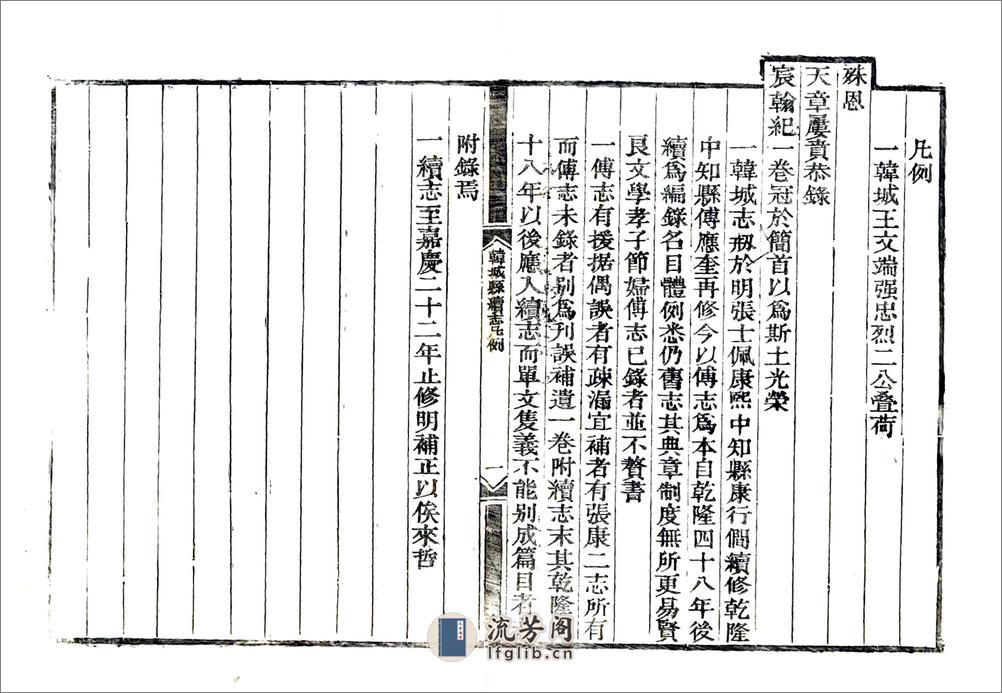 凡例
一韓城王文端强忠烈二公叠荷
殊恩
天章屢賁恭錄
宸翰紀一卷冠於簡首以爲斯土光榮
一韓城志刱於明張士佩康熙中知縣康行僩續修乾隆
中知縣傅應奎再修今以傅志爲本自乾隆四十八年後
續爲編錄名目體例悉仍舊志其典章制度無所更易賢
良文學孝子節婦傅志已錄者並不贅書
一傅志有援据偶誤者有疎漏宜補者有張康二志所有
而傅志未錄者别爲刊誤補遺一卷附續志末其乾隆四
十八年以後應入續志而單文隻義不能别成篇目者
附錄焉
一續志至嘉慶二十二年止修明補正以俟來哲
韓城縣續志凡例
一
流芳阁
lfglib.cn